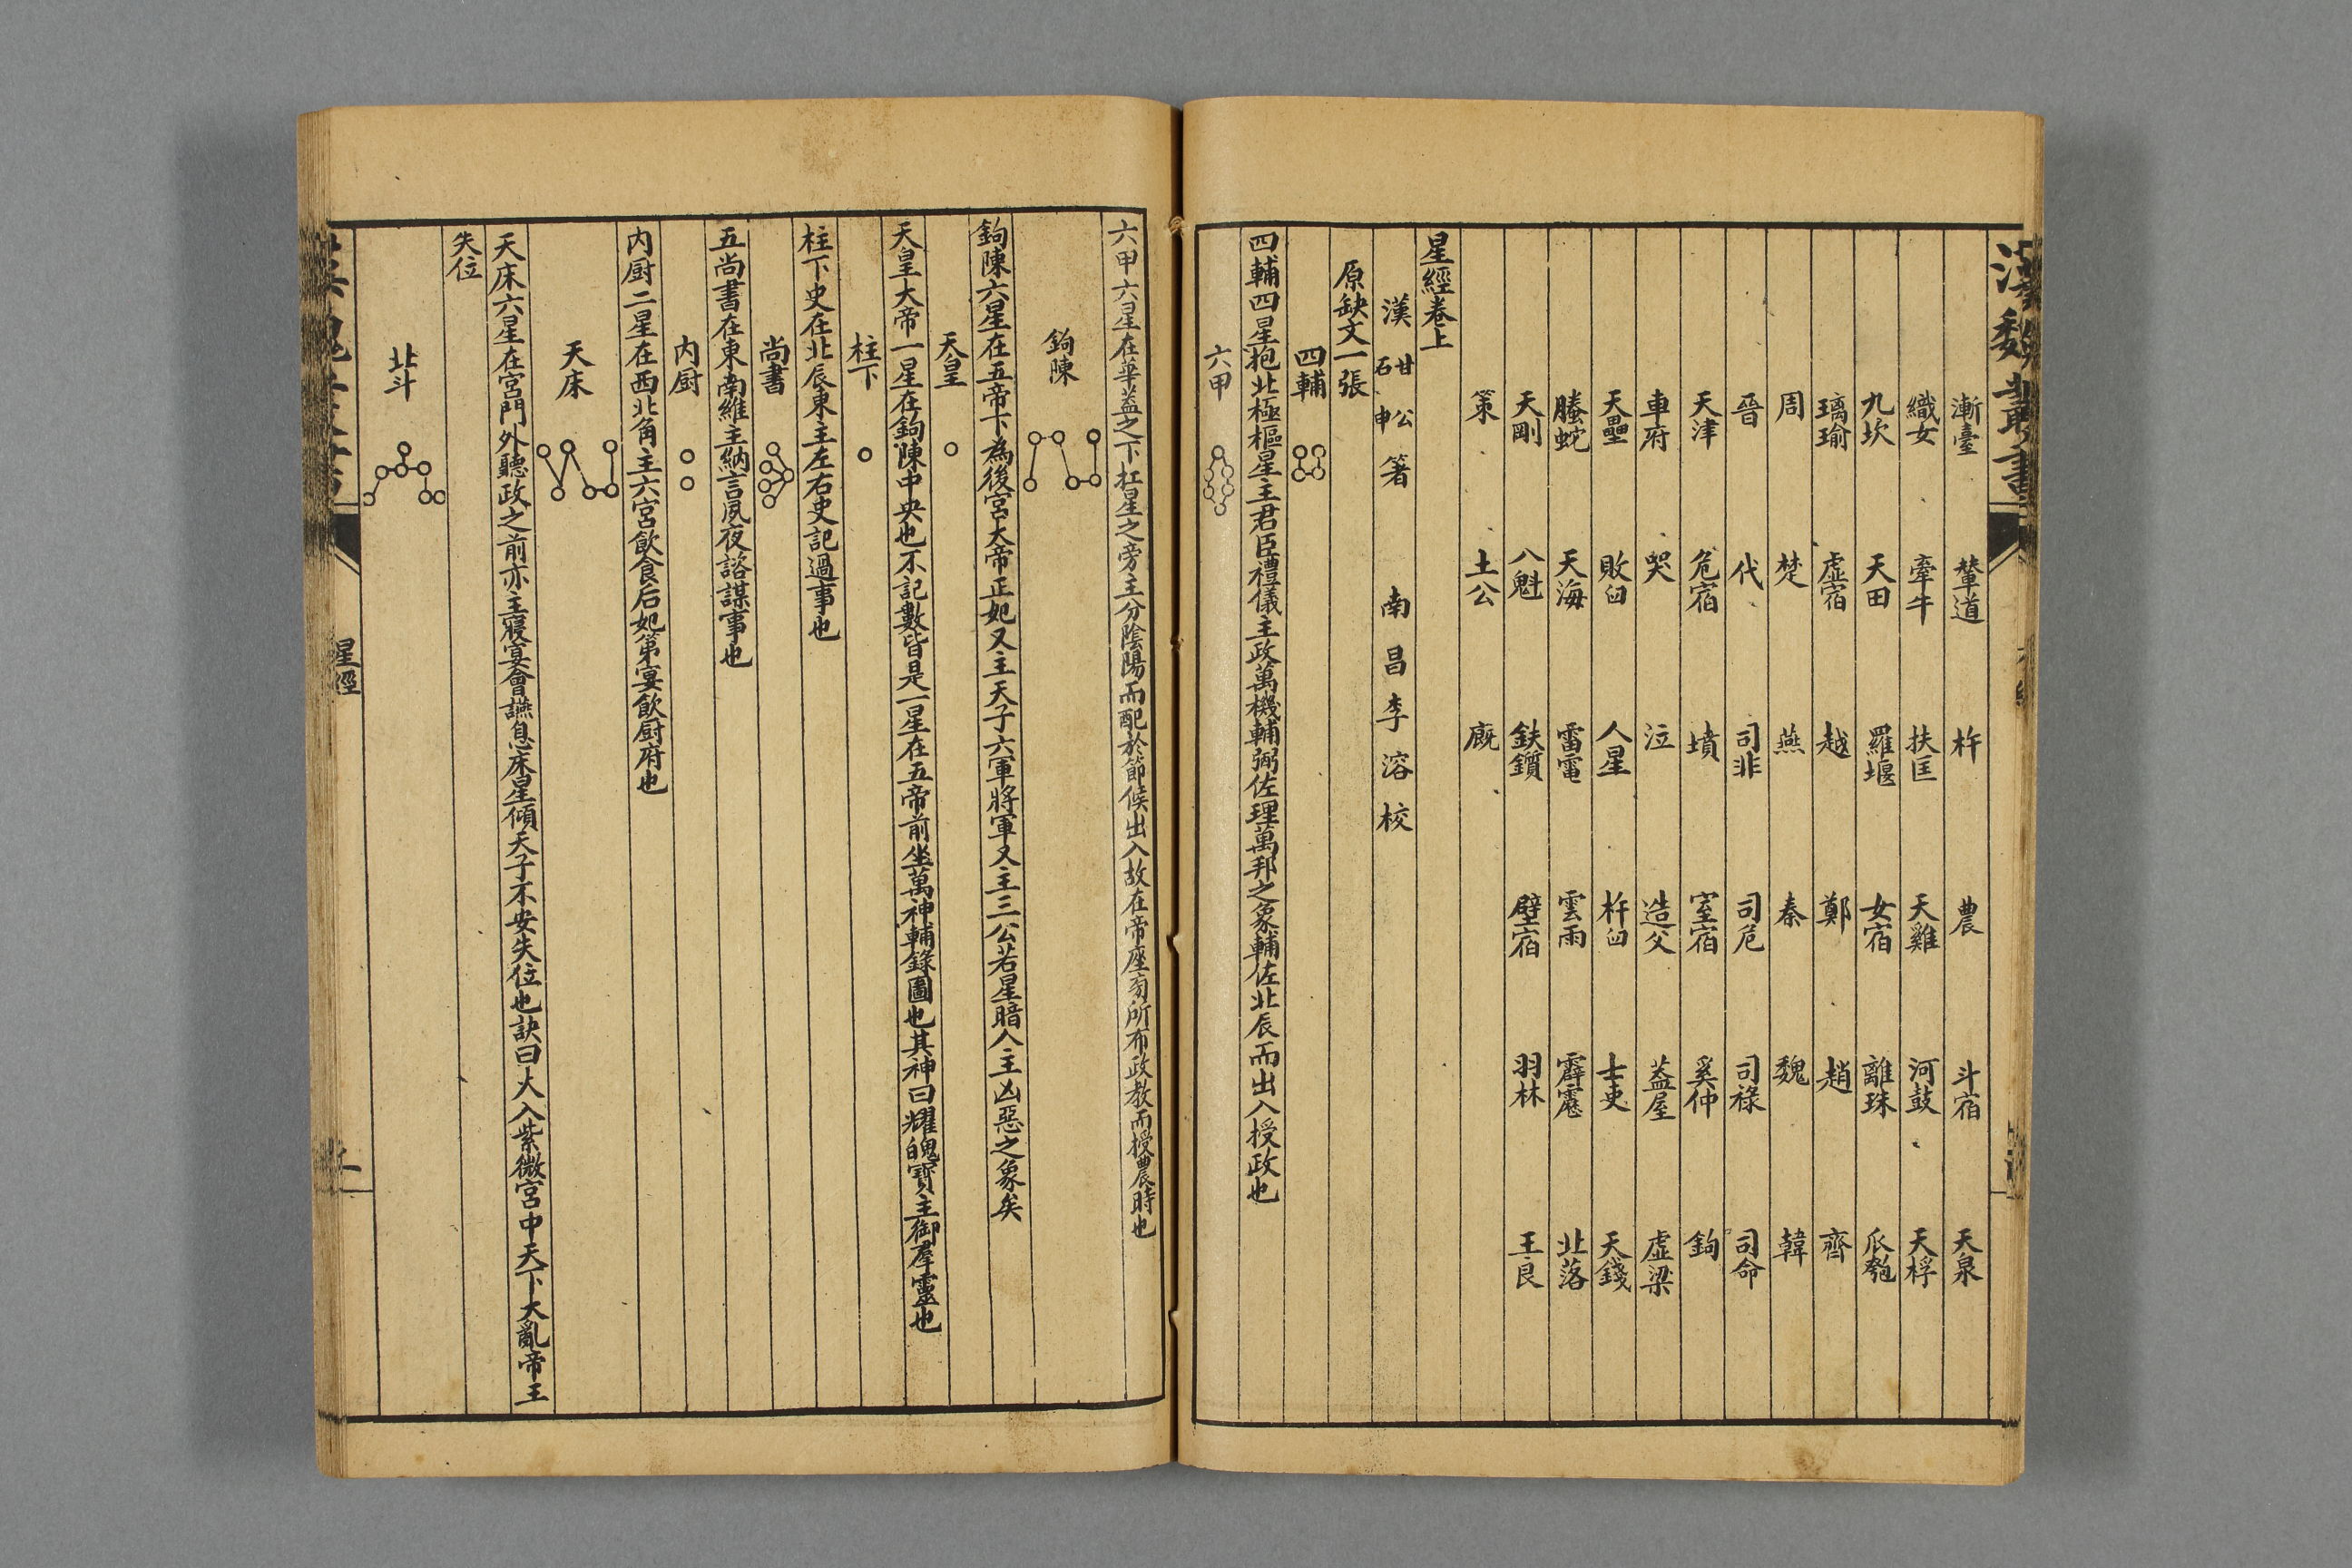 漢魏叢書
漸臺 輦道 杵 農 斗宿 天泉
織女 牽牛 扶匡 天雞 河鼓 天桴
九坎 天田 羅堰 女宿 離珠 瓜匏
璃瑜 虛宿 越 鄭 趙 齊
周 楚 燕 秦 魏 韓
晉 代 司非 司危 司祿 司命
天津 危宿 墳 室宿 奚仲 鉤
車府 哭 泣 造父 葢屋 虛梁
天壘 敗臼 人星 杵臼 士吏 天錢
螣蛇 天海 雷電 雲雨 霹靂 北落
天剛 八魁 鈇鑕 壁宿 羽林 王良
策 土公 廐
星經卷上
漢 甘公 石申 箸 南昌李溶校
原缺文一張
四輔
四輔四星抱北極樞星主君臣禮儀主政萬機輔弼佐理萬邦之象輔佐北辰而出入授政也
六甲
六甲六星在華葢之下杠星之旁主分陰陽而配於節候出入故在帝座旁所布政教而授農時也
鉤陳
鉤陳六星在五帝下為後宮大帝正妃又主天子六軍將軍又主三公若星暗人主凶惡之象矣
天皇
天皇大帝一星在鉤陳中央也不記數皆是一星在五帝前坐萬神輔錄圖也其神曰耀魄寶主御羣靈也
柱下
柱下史在北辰東主左右史記過事也
尚書
五尚書在東南維主納言夙夜諮謀事也
内厨
内厨二星在西北角主六宮飲食后妃第宴飲厨府也
天床
天床六星在宮門外聽政之前亦主寢宴會讌息床星傾天子不安失位也訣曰大入紫微宮中天下大亂帝王
失位
北斗
星經